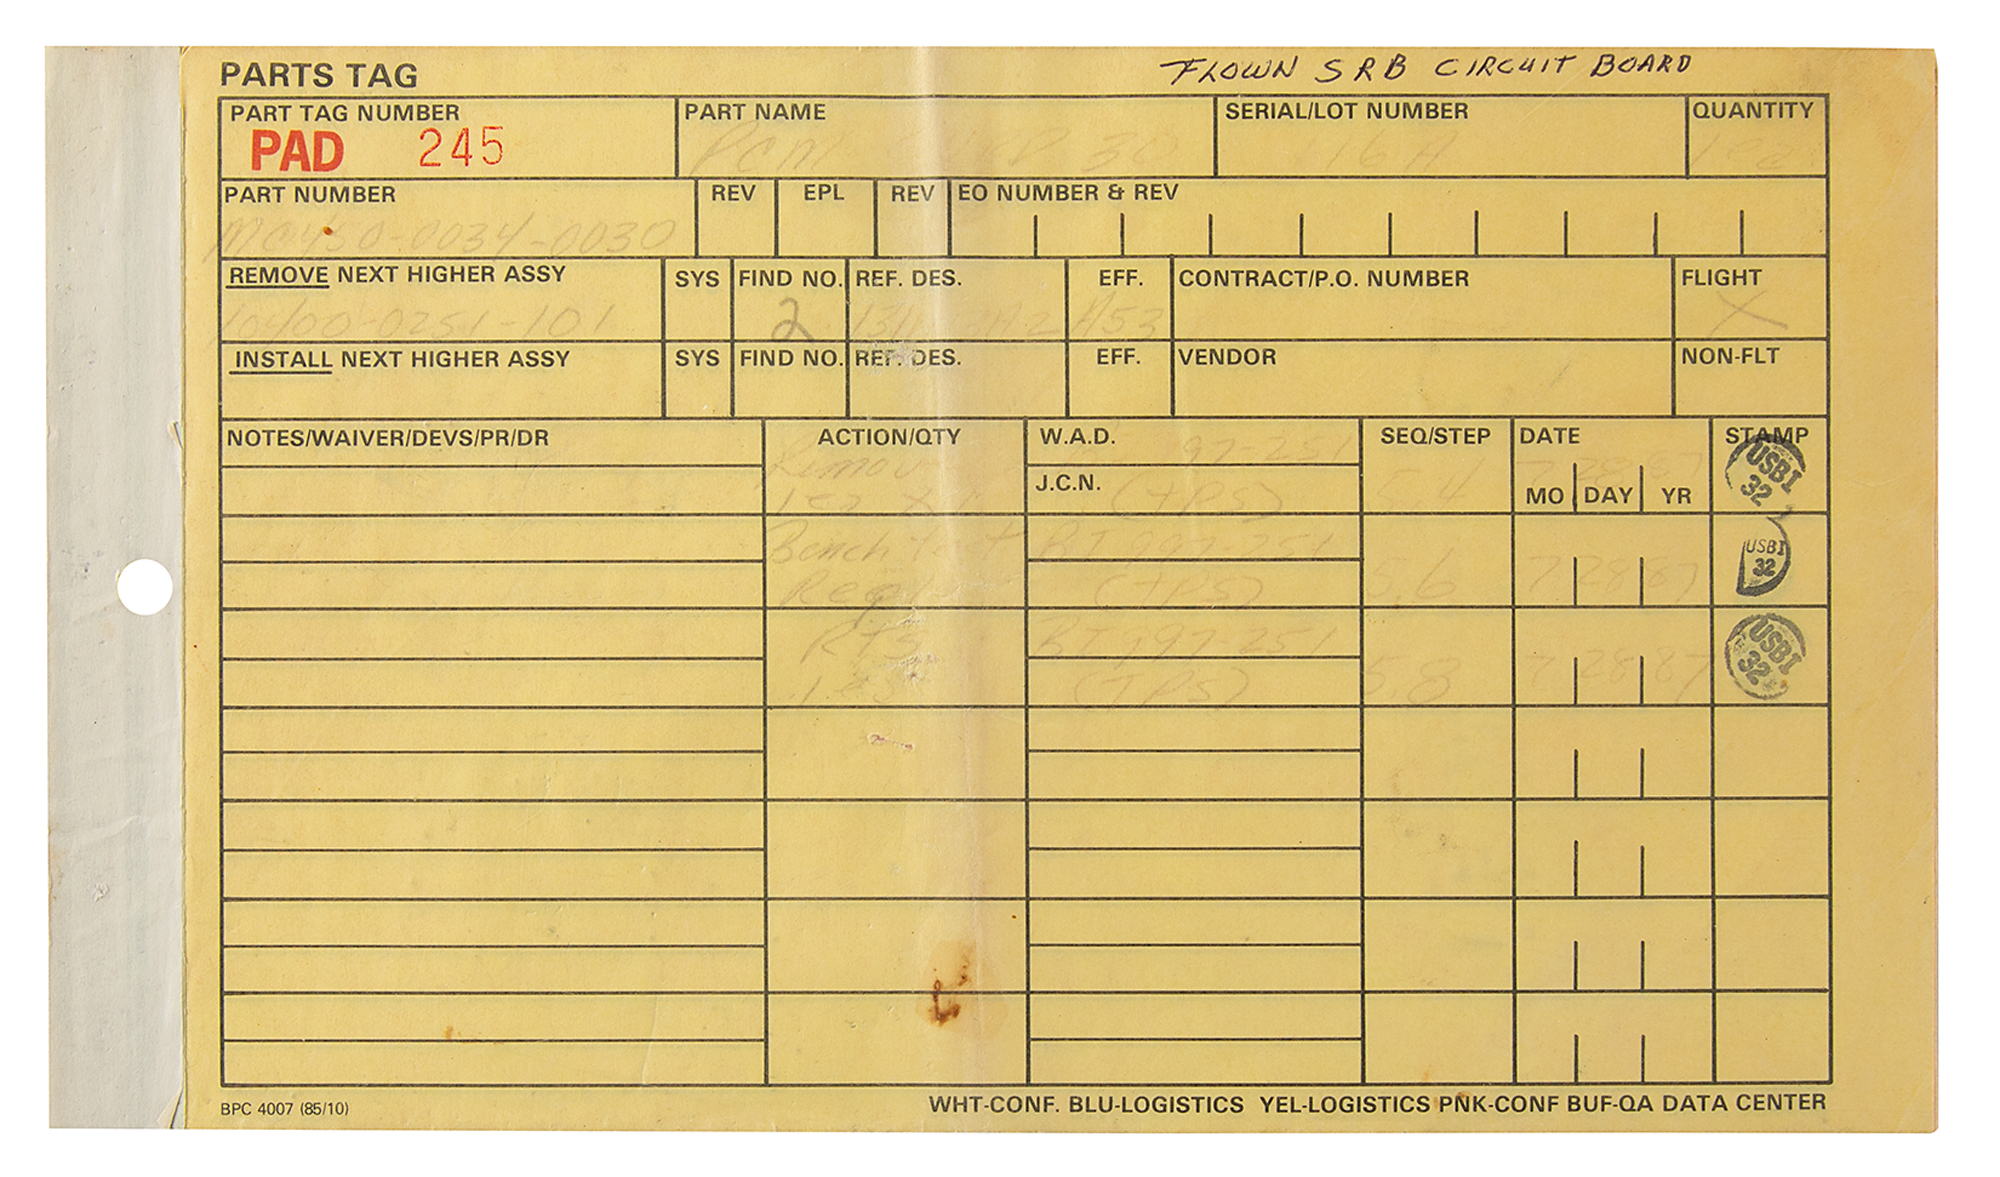 FLOWN SRB CIRCUIT BOARD
PARTS TAG
PART TAG NUMBER PART NAME SERIAL/LOT NUMBER QUANTITY
PAD 245 PCM 3 16 A 1 ea
PART NUMBER REV EPL REV EO NUMBER & REV
MC450-0034-0030
REMOVE NEXT HIGHER ASSY SYS FIND NO. REF. DES. EFF. CONTRACT/P.O. NUMBER FLIGHT
10400-0251-101 2 A53 X
INSTALL NEXT HIGHER ASSY SYS FIND NO. REF. DES. EFF. VENDOR NON-FLT
NOTES/WAIVER/DEVS/PR/DR ACTION/QTY W.A.D. SEQ/STEP DATE STAMP
Remov 97-251 7 28 87 USBI
J.C.N. (TPS) 5.4 MO DAY YR 32
Bench test BI 997-251 USBI
Reqd (TPS) 5.6 7 28 87 32
RTS BI 997-251 USBI
1 ea (TPS) 5.8 7 28 87 32
BPC 4007 (85/10) WHT-CONF. BLU-LOGISTICS YEL-LOGISTICS PNK-CONF BUF-QA DATA CENTER